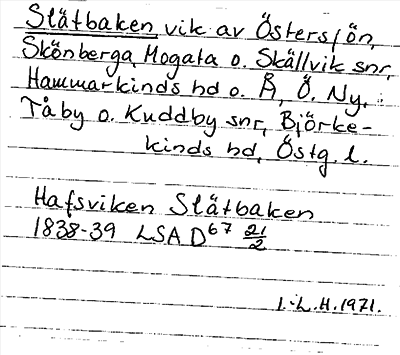 Slätbaken vik av Östersjön,
Skönberga, Mogata o. Skällvik snr,
Hammarkinds hd o. Å, Ö. Ny,
Tåby o. Kuddby snr, Björke-
kinds hd, Östg. l.
Hafsviken Slätbaken
1838-39 LSA D67 21/2
I.-L.H.1971.